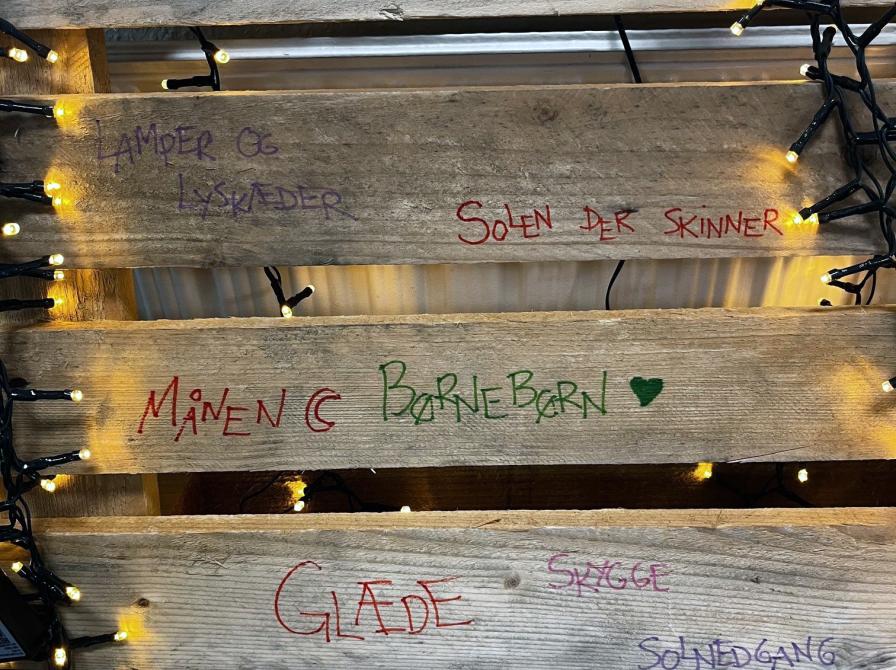 LAMPER OG
LYSKÆDER
SOLEN DER SKINNER
MÅNEN
BØRNEBØRN ♥
GLÆDE
SKYGGE
SOLNEDGANG